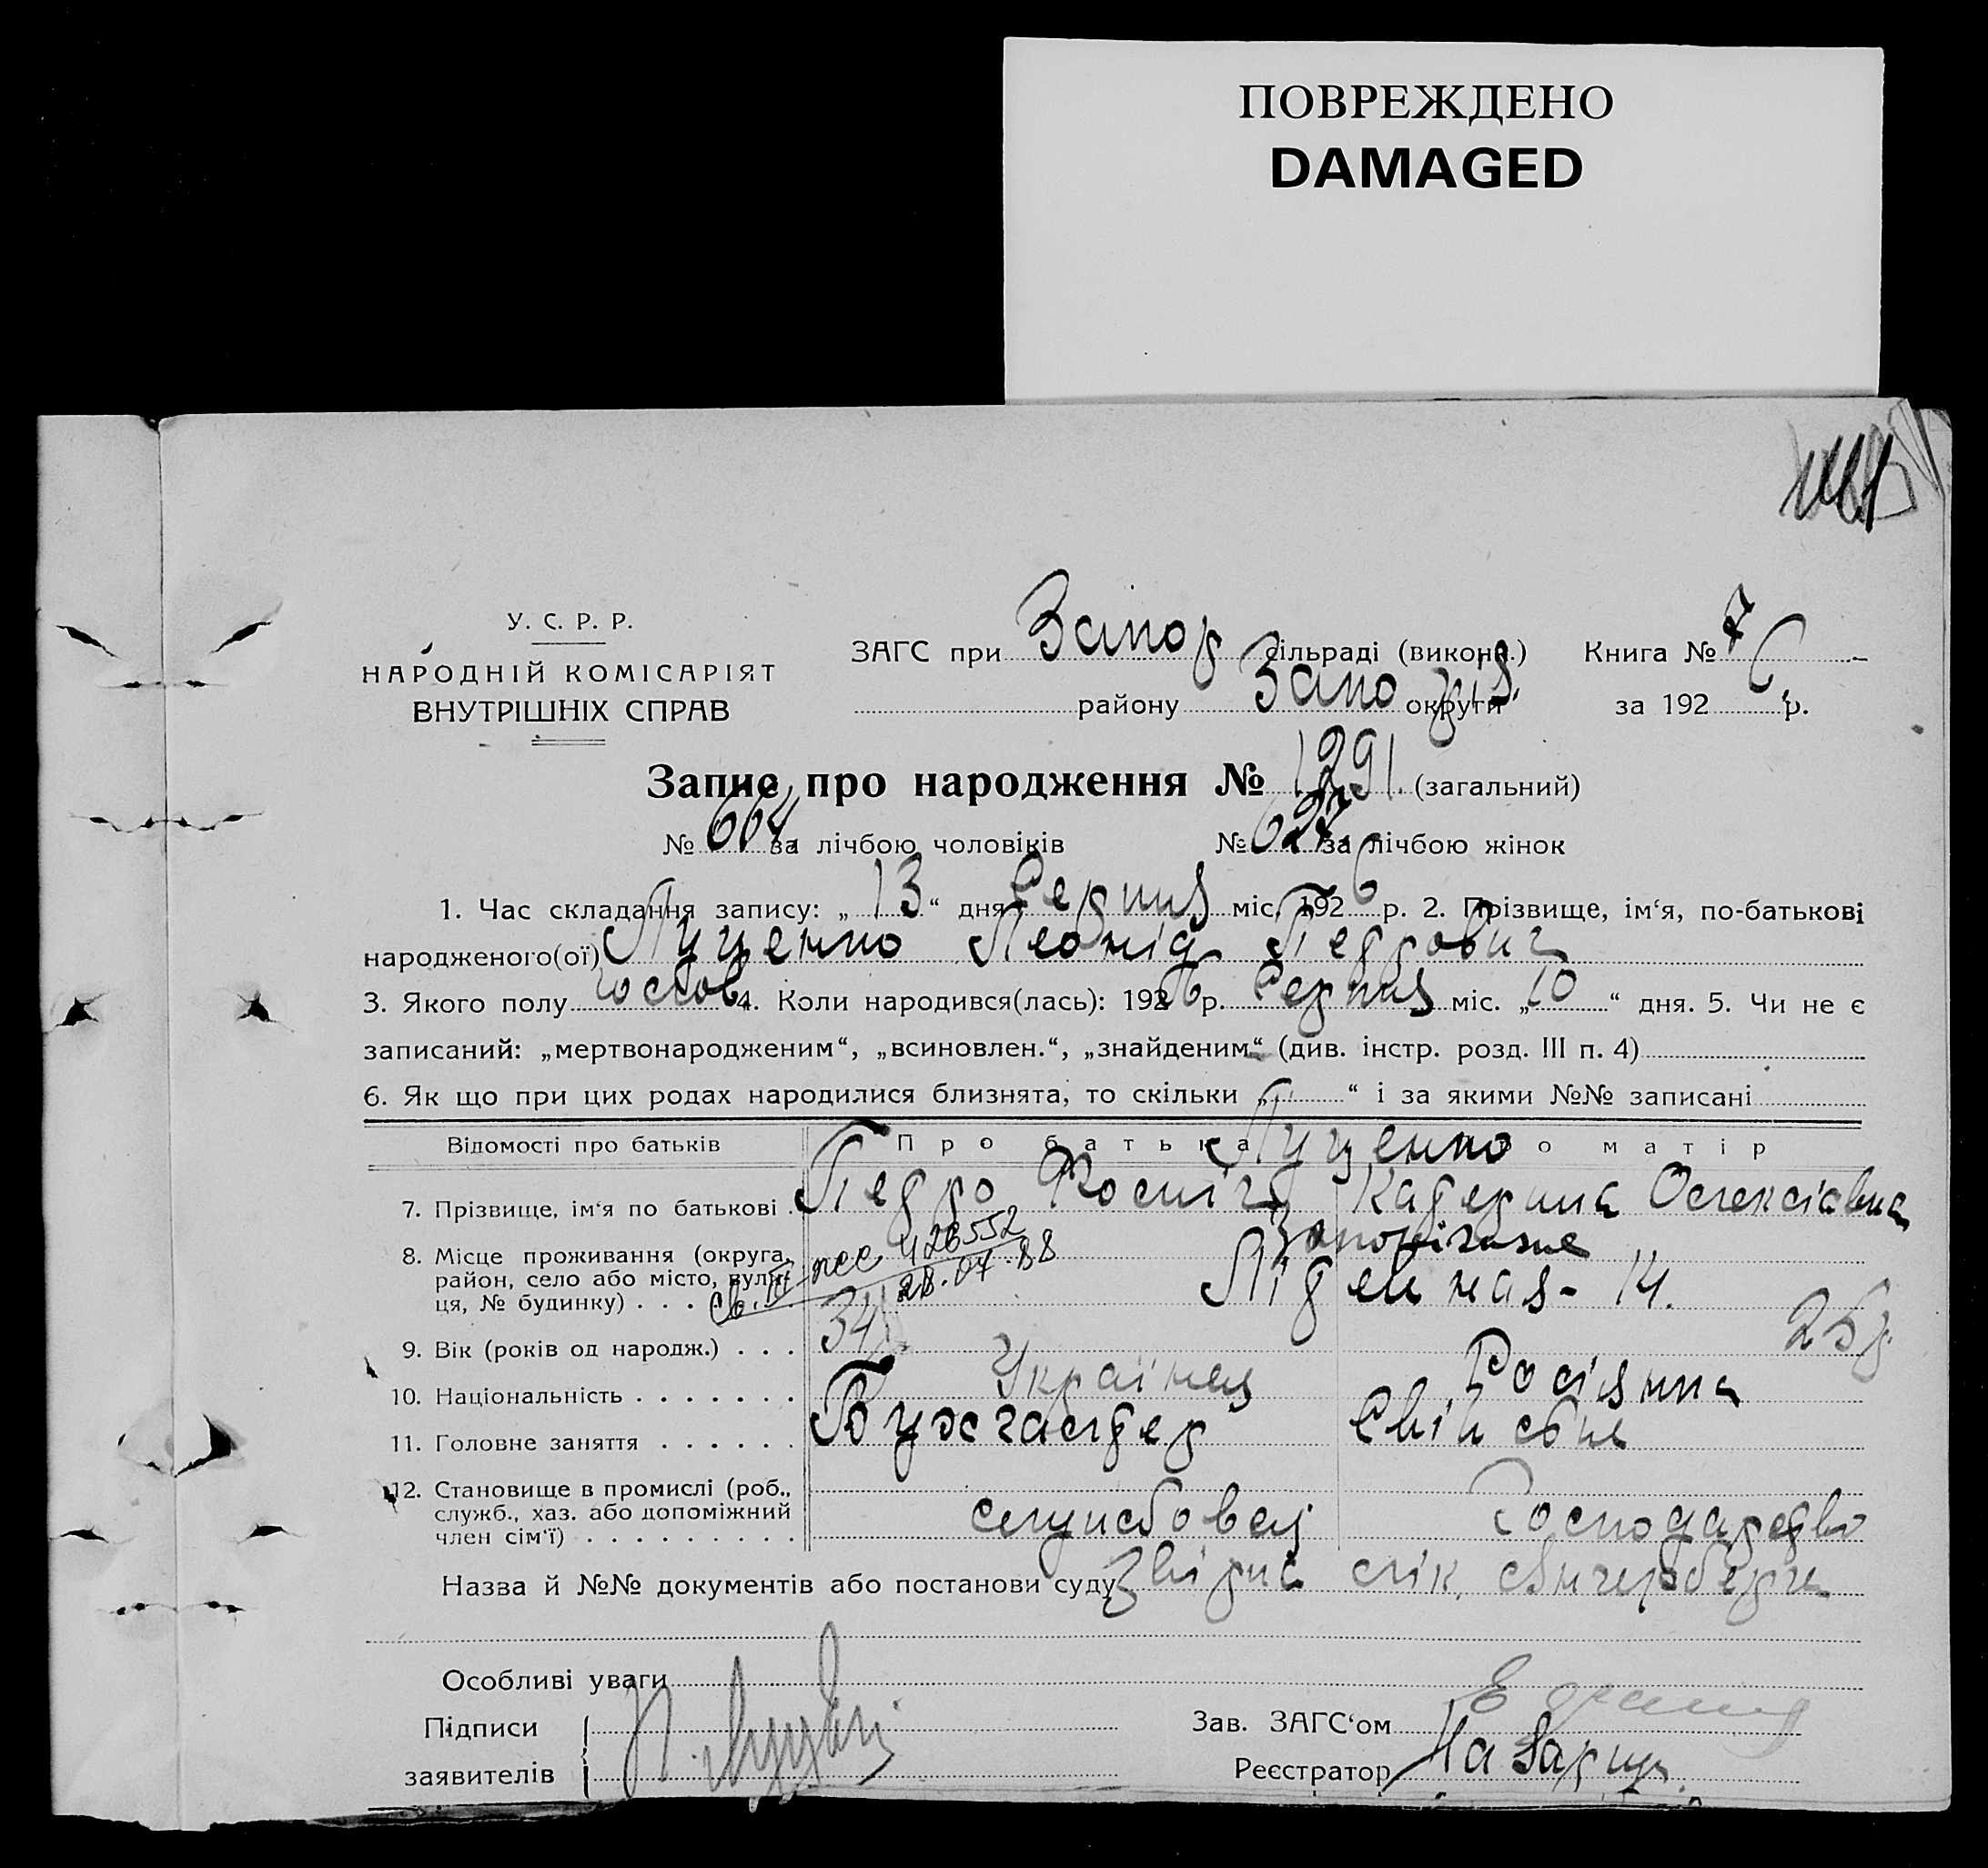 ПОВРЕЖДЕНО
DAMAGED
У. С. Р. Р.
НАРОДНІЙ КОМІСАРІЯТ
ВНУТРІШНІХ СПРАВ
ЗАГС при Запор сільраді (виконк.) Книга № 7
району Запоріз округи за 192 6 р.
Запис про народження № 1291 (загальний)
№ 664 за лічбою чоловіків № 627 за лічбою жінок
1. Час складання запису: „ 13 “ дня Серпня міс. 192 6 р. 2. Прізвище, ім‘я, по-батькові
народженого(ої) Луценко Леонід Петрович
3. Якого полу чолов 4. Коли народився(лась): 192 6 р. Серпня міс. „ 10 “ дня. 5. Чи не є
записаний: „мертвонародженим“, „всиновлен.“, „знайденим“ (див. інстр. розд. III п. 4)
6. Як що при цих родах народилися близнята, то скільки „ “ і за якими №№ записані
Відомості про батьків Про батька Про матір
Луценко
7. Прізвище, ім‘я по батькові Петро Катерина Олексіївна
8. Місце проживання (округа,
район, село або місто, вули-
ця, № будинку) . . . 426552
28.07.88
Запоріжжя
14.
9. Вік (років од народж.) . . . 34 р. 25 р.
10. Національність . . . . . . . Українец Росіянка
11. Головне заняття . . . . . . Бухгалтер
12. Становище в промислі (роб.,
служб., хаз. або допоміжний
член сім‘ї) . . . . . . . . . службовец Господарство
Назва й №№ документів або постанови суду
Особливі уваги
Підписи
заявителів
Зав. ЗАГС‘ом
Реєстратор